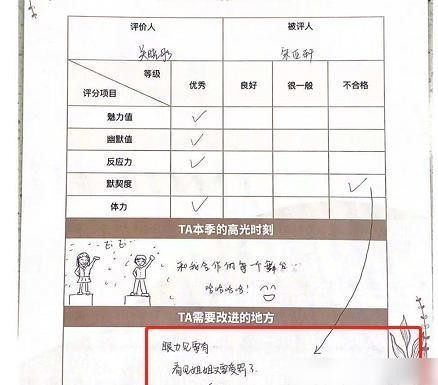 评价人 被评人
吴晓
等级 评分项目 优秀 良好 很一般 不合格
魅力值
幽默值
反应力
默契度
体力
TA本季的高光时刻
和我合作的每一个舞台
哈哈哈哈!
TA需要改进的地方
眼力见要有…
看见姐姐